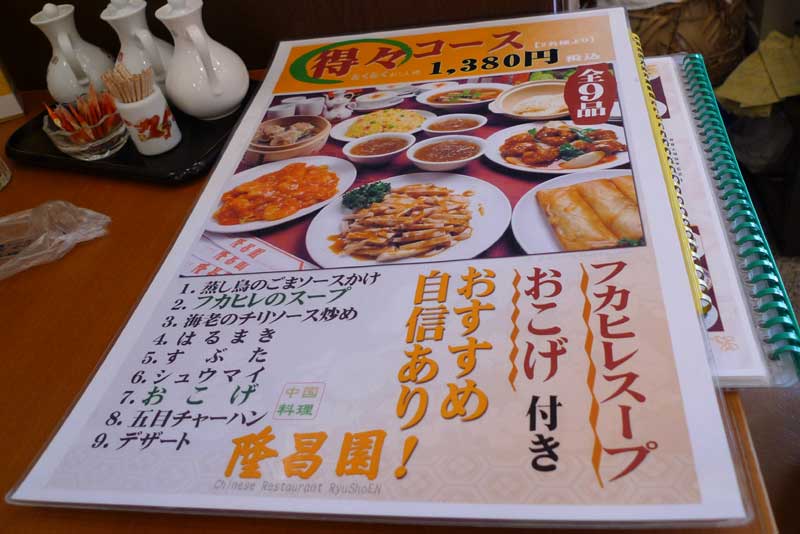 得々コース
【2名様より】
とくとく
1,380円
税込
全9品
隆昌園
隆昌園
フカヒレスープ
おこげ付き
おすすめ
自信あり!
1. 蒸し鳥のごまソースかけ
2. フカヒレのスープ
3. 海老のチリソース炒め
4. はるまき
5. すぶた
6. シュウマイ
7. おこげ
8. 五目チャーハン
9. デザート
中国
料理
隆昌園
Chinese Restaurant RyuShoEN